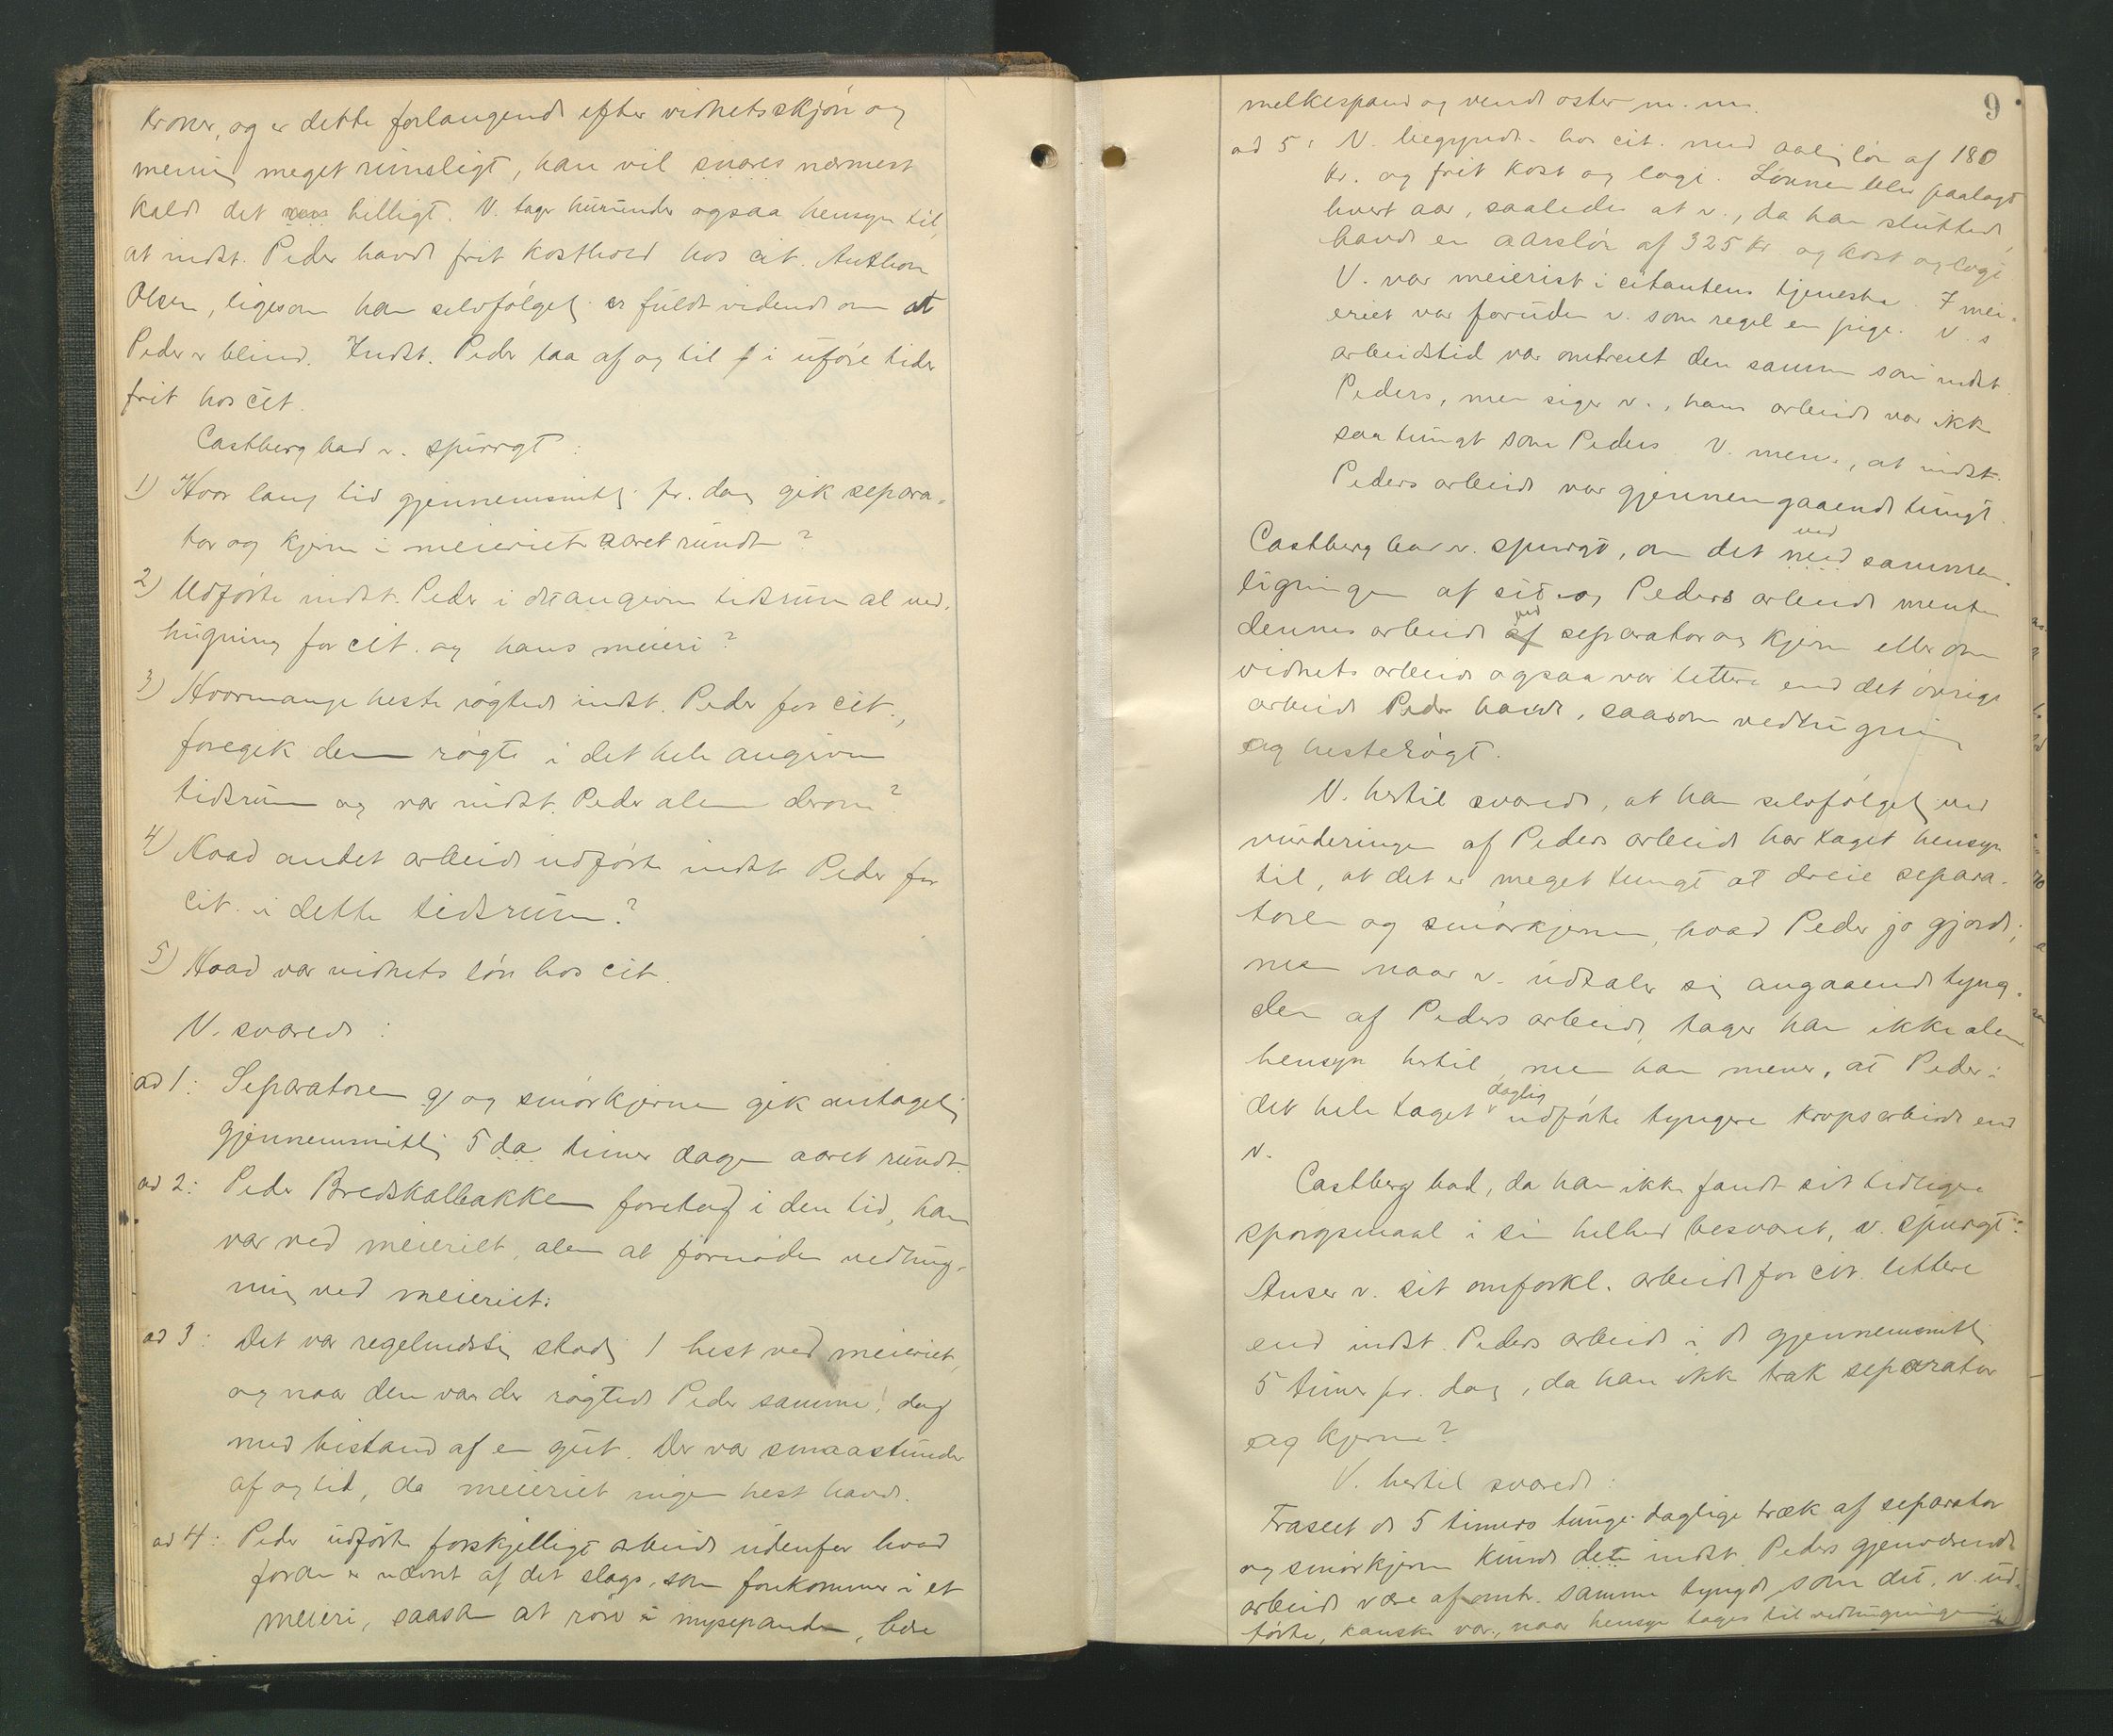 kroner, og er dette forlangende efter vidnets skjøn og
mening meget rimeligt, han vil snarest nærmest
kalde det billigt. V. tager herunder ogsaa hensyn til,
at indst. Peder havde frit kosthold hos cit. Anthon
Olsen, ligesom han selvfølgelig er fuldt vidende om at
Peder er blind. Indst. Peder laa af og til i uføre tider
frit hos cit.
Castberg bad v. spurgt:
1) Hvor lang tid gjennemsnitlig pr. dag gik separa-
tor og kjerne i meieriet aaret rundt?
2) Udførte indst. Peder i det angivne tidsrum al ved-
hugning for cit. og hans meieri?
3) Hvormange heste røgtede indst. Peder for cit.,
foregik denne røgte i det hele angivne
tidsrum og var indst. Peder alene derom?
4) Hvad andet arbeide udførte indst. Peder for
cit. i dette tidsrum?
5) Hvad var vidnets løn hos cit.
V. svarede:
ad 1: Separatoren og smørkjernen gik antagelig
gjennemsnitlig 5 a timer dagen aaret rundt.
ad 2: Peder Bredskallbakken foretog i den tid, han
var ved meieriet, alene al fornøden vedhug-
ning ved meieriet.
ad 3: Det var regelmæssig stadig 1 hest ved meieriet,
og naar den var der røgtede Peder samme, dog
med bistand af en gut. Der var smaastunder
af og til, da meieriet ingen hest havde.
ad 4: Peder udførte forskjelligt arbeide udenfor hvad
foran er nævnt af det slags, som forekommer i et
meieri, saasom at røre i mysepanden, bære
9
melkespand og vende oster m. m.
ad 5: V. begyndte hos cit. med aarlig løn af 180
kr. og frit kost og logi. Lønnen blev paalagt
hvert aar, saaledes at v., da han sluttede,
havde en aarsløn af 325 kr. og kost og logi
V. var meierist i citantens tjeneste. I mei-
eriet var foruden v. som regel en pige. V.s
arbeidstid var omtrent den samme som indst.
Peders, men siger v., hans arbeide var ikke
saa tungt som Peders. V. mener, at indst.
Peders arbeide var gjennemgaaende tungt.
Castberg bad v. spurgt, om det ved sammen-
ligningen af sit og Peders arbeide mente
dennes arbeide ved separator og kjerne eller om
vidnets arbeide ogsaa var lettere end det øvrige
arbeide Peder havde, saasom vedhugning
og hesterøgt.
V. hertil svarede, at han selvfølgelig ved
vurderingen af Peders arbeide har taget hensyn
til, at det er meget tungt at dreie separa-
toren og smørkjernen, hvad Peder jo gjorde;
men naar v. udtaler sig angaaende tyng-
den af Peders arbeide, tager han ikke alene
hensyn hertil, men han mener, at Peder i
det hele taget daglig udførte tyngere kropsarbeide end
v.
Castberg bad, da han ikke fandt sit tidligere
spørgsmaal i sin helhed besvaret, v. spurgt:
Anser v. sit omforkl. arbeide for cit. lettere
end indst. Peders arbeide i de gjennemsnitlig
5 timer pr. dag, da han ikke trak separator
og kjerne?
V. hertil svarede:
Fraseet de 5 timers tunge daglige træk af separator
og smørkjerne kunde det indst. Peders gjenværende
arbeide være af omtr. samme tyngde som det, v. ud-
førte, kanske var, naar hensyn tages til vedhugningen